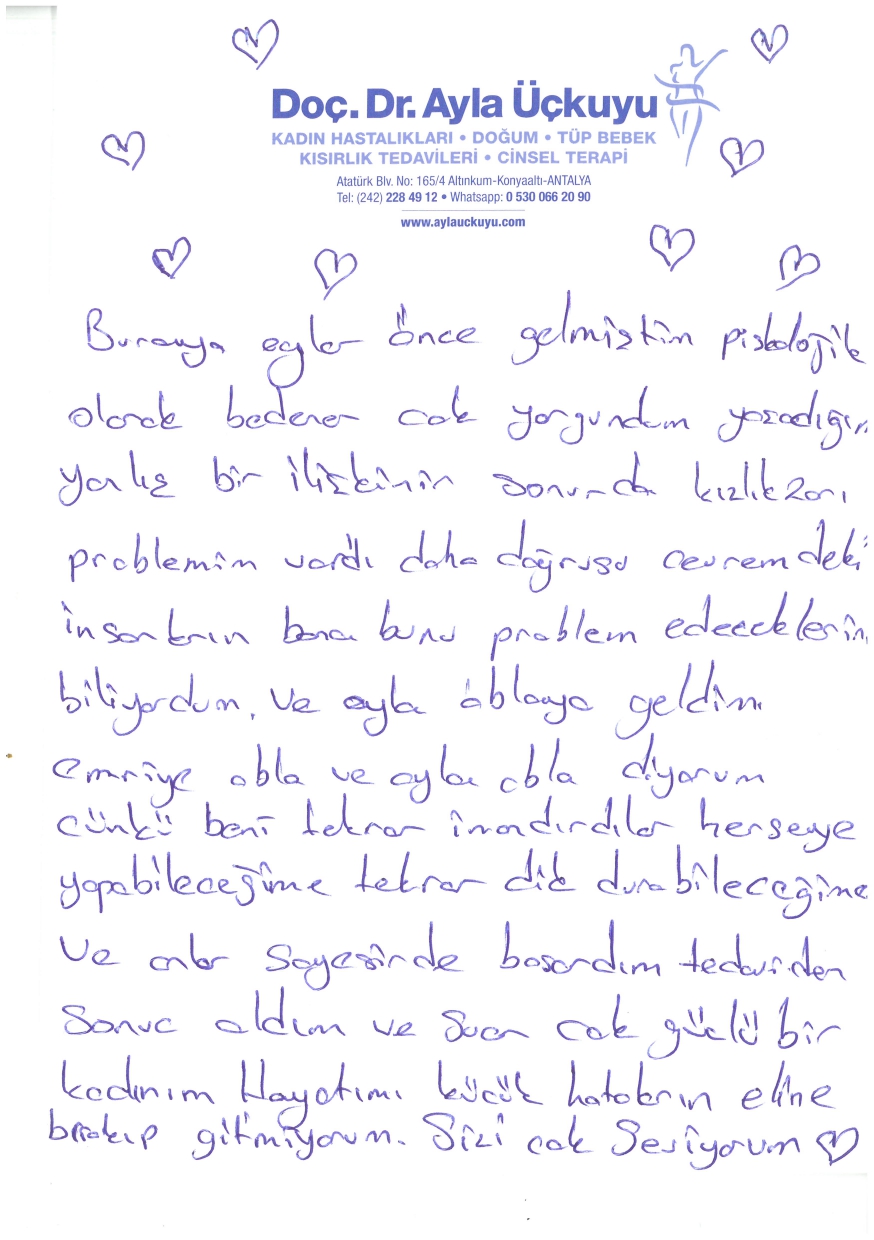 Doç. Dr. Ayla Üçkuyu
KADIN HASTALIKLARI • DOĞUM • TÜP BEBEK
KISIRLIK TEDAVİLERİ • CİNSEL TERAPİ
Atatürk Blv. No: 165/4 Altınkum-Konyaaltı-ANTALYA
Tel: (242) 228 49 12 • Whatsapp: 0 530 066 20 90
www.aylauckuyu.com
Buraya aylar önce gelmiştim piskolojik
olarak bedenen cok yorgundum yaşadığım
yanlış bir ilişkinin sonunda kızlık zarı
problemim vardı daha doğrusu cevremdeki
insanların bana bunu problem edeceklerin
biliyordum. Ve ayla ablaya geldim.
emriye abla ve ayla abla diyorum
cünkü beni tekrar inandırdılar herseye
yapabileceğime tekrar dik durabileceğime
Ve onlar sayesinde basardım tedaviden
Sonuc aldım ve Suan cok güclü bir
kadınım Hayatımı kücük hataların eline
bırakıp gitmiyorum. Sizi cok Seviyorum